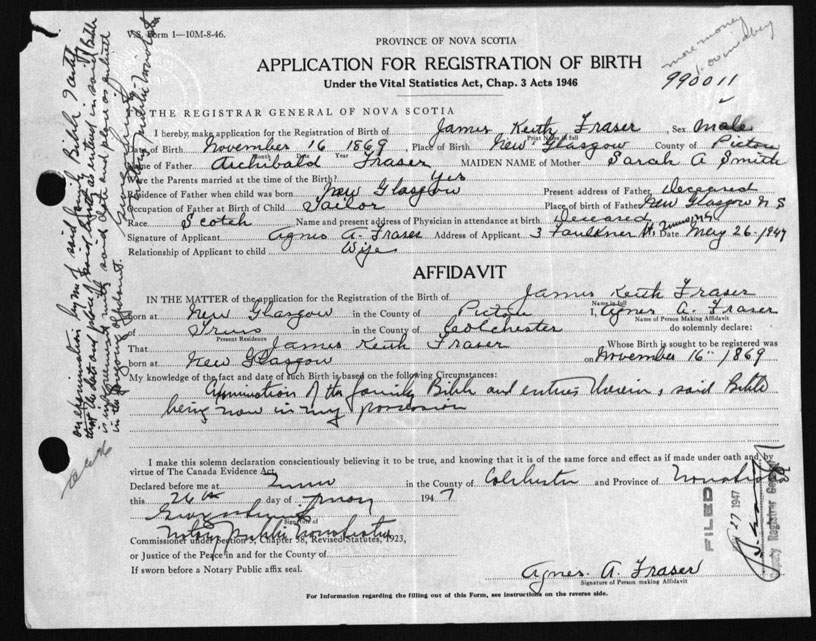 V.S. Form 1—10M-8-46.
PROVINCE OF NOVA SCOTIA
APPLICATION FOR REGISTRATION OF BIRTH
Under the Vital Statistics Act, Chap. 3 Acts 1946
more money
990011
THE REGISTRAR GENERAL OF NOVA SCOTIA
I hereby, make application for the Registration of Birth of James Keith Fraser , Sex Male
Print Name in full
Date of Birth November 16 1869 , Place of Birth New Glasgow County of Pictou
Month Date Year
Name of Father Archibald Fraser MAIDEN NAME of Mother Sarah A Smith
Were the Parents married at the time of the Birth? Yes
Residence of Father when child was born New Glasgow Present address of Father Deceased
Occupation of Father at Birth of Child Tailor Place of birth of Father New Glasgow N S
Race Scotch Name and present address of Physician in attendance at birth Deceased
Signature of Applicant Agnes A. Fraser Address of Applicant 3 Faulkner St. Truro N.S. Date May 26-1947
Relationship of Applicant to child Wife
AFFIDAVIT
IN THE MATTER of the application for the Registration of Birth of James Keith Fraser
Name in full
Born at New Glasgow in the County of Pictou I, Agnes A. Fraser
Name of Person Making Affidavit
of Truro in the County of Colchester do solemnly declare:
Present Residence
That James Keith Fraser Whose Birth is sought to be registered was
born at New Glasgow on November 16th 1869
My knowledge of the fact and date of such Birth is based on the following Circumstances:
Examination of the family Bible and entries therein, said Bible
being now in my possession
I make this solemn declaration conscientiously believing it to be true, and knowing that it is of the same force and effect as if made under oath and by
virtue of The Canada Evidence Act.
Declared before me at Truro in the County of Colchester and Province of Nova Scotia
this 26th day of May 1947
Signature of
Notary Public Nova Scotia
Commissioner under Section 3, Chapter 38, Revised Statutes, 1923,
or Justice of the Peace in and for the County of
If sworn before a Notary Public affix seal.
Agnes A. Fraser
Signature of Person making Affidavit
For Information regarding the filling out of this Form, see instructions on the reverse side.
on examination by me of said family Bible I certify
that the date and place of said birth as entered in said Bible
is in agreement with said date and place as outlined
in the foregoing affidavit.
Notary Public Nova Scotia
FILED
27 1947
Deputy Registrar General